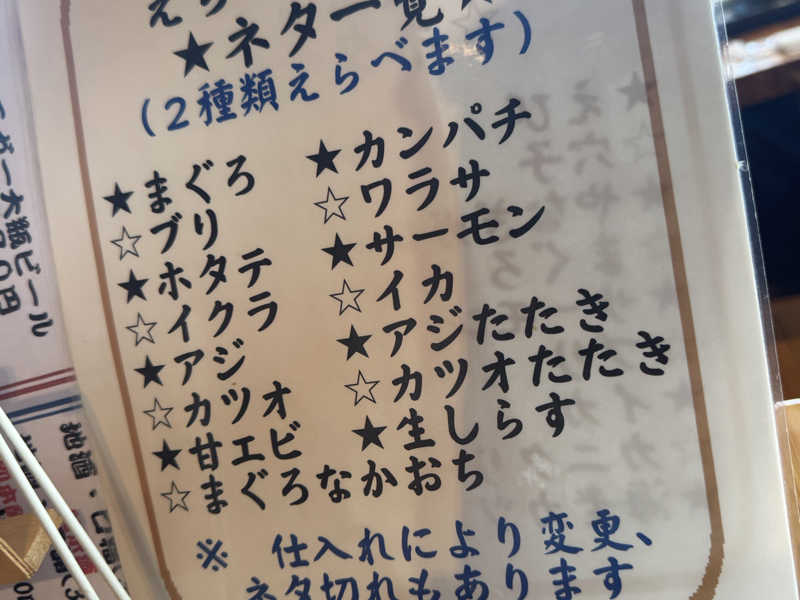 ★ネタ一覧
(2種類えらべます)
★まぐろ
☆ブリ
★ホタテ
☆イクラ
★アジ
☆カツオ
★甘エビ
☆まぐろなかおち
★カンパチ
☆ワラサ
★サーモン
☆イカ
★アジたたき
☆カツオたたき
★生しらす
※ 仕入れにより変更、
ネタ切れもあります
大瓶ビール
地酒・